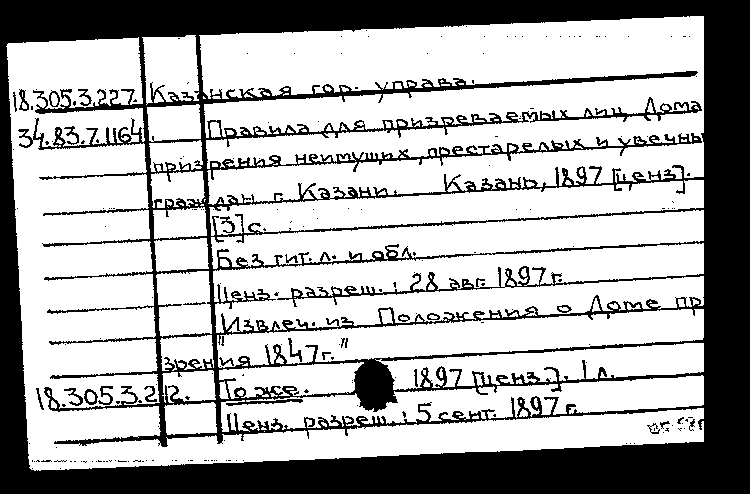 18.305.3.227. Казанская гор. управа.
34.83.7.1164. Правила для призреваемых лиц Дома
призрения неимущих, престарелых и увечны
граждан г. Казани. Казань, 1897 [ценз].
[3] с.
Без тит. л. и обл.
Ценз. разреш.: 28 авг. 1897 г.
"Извлеч. из Положения о Доме пр
зрения 1847 г."
18.305.3.212. То же. 1897 [ценз.]. 1 л.
Ценз. разреш.: 5 сент. 1897 г.